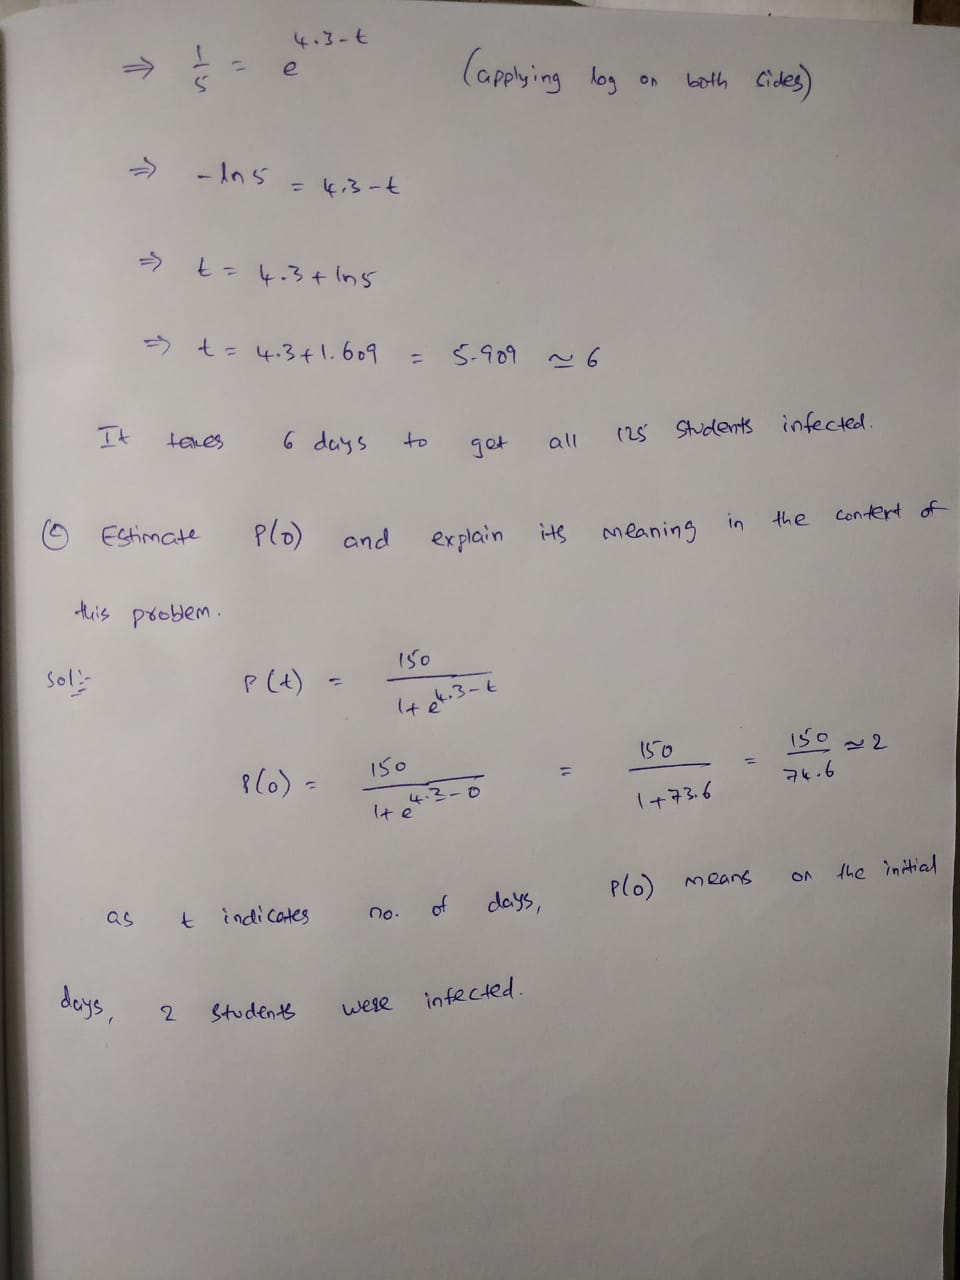 ⇒ 1/5 = e^(4.3-t) (applying log on both sides)
⇒ -ln5 = 4.3-t
⇒ t = 4.3+ln5
⇒ t = 4.3+1.609 = 5.909 ≃ 6
It takes 6 days to get all 125 students infected.
© Estimate P(0) and explain its meaning in the context of
this problem.
Sol:- P(t) = 150/(1+e^(4.3-t))
P(0) = 150/(1+e^(4.3-0)) = 150/(1+73.6) = 150/74.6 ≃ 2
as t indicates no. of days, P(0) means on the initial
days, 2 students were infected.